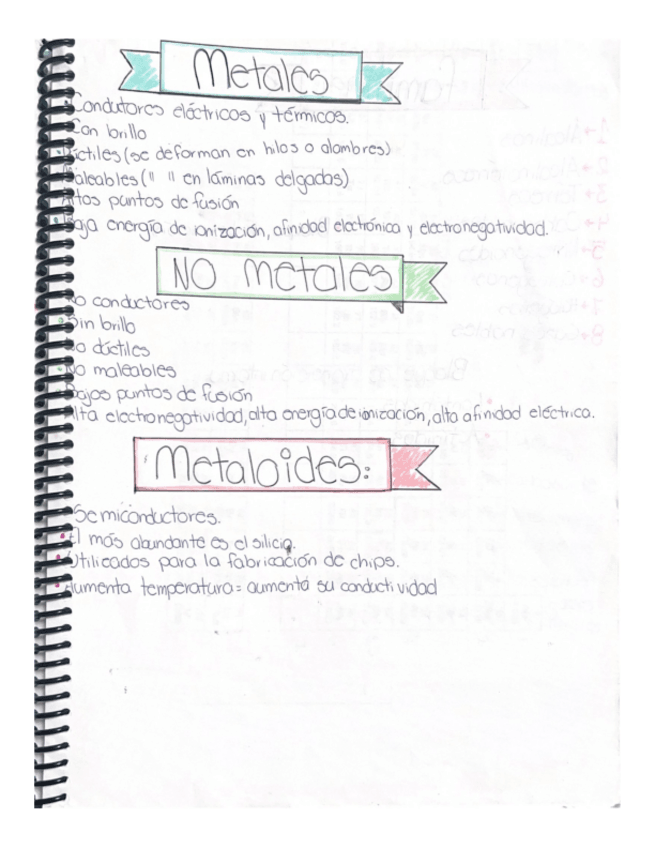 Metales
Condutores eléctricos y térmicos.
Con brillo
Dúctiles (se deforman en hilos o alambres)
Maleables (" " en láminas delgadas)
Altos puntos de fusión
Baja energía de ionización, afinidad electrónica y electronegatividad.
NO metales
No conductores
Sin brillo
No dúctiles
No maleables
Bajos puntos de fusión
Alta electronegatividad, alta energía de ionización, alta afinidad eléctrica.
Metaloides:
Semiconductores.
El más abundante es el silicio.
Utilizados para la fabricación de chips.
Aumenta temperatura = aumenta su conductividad